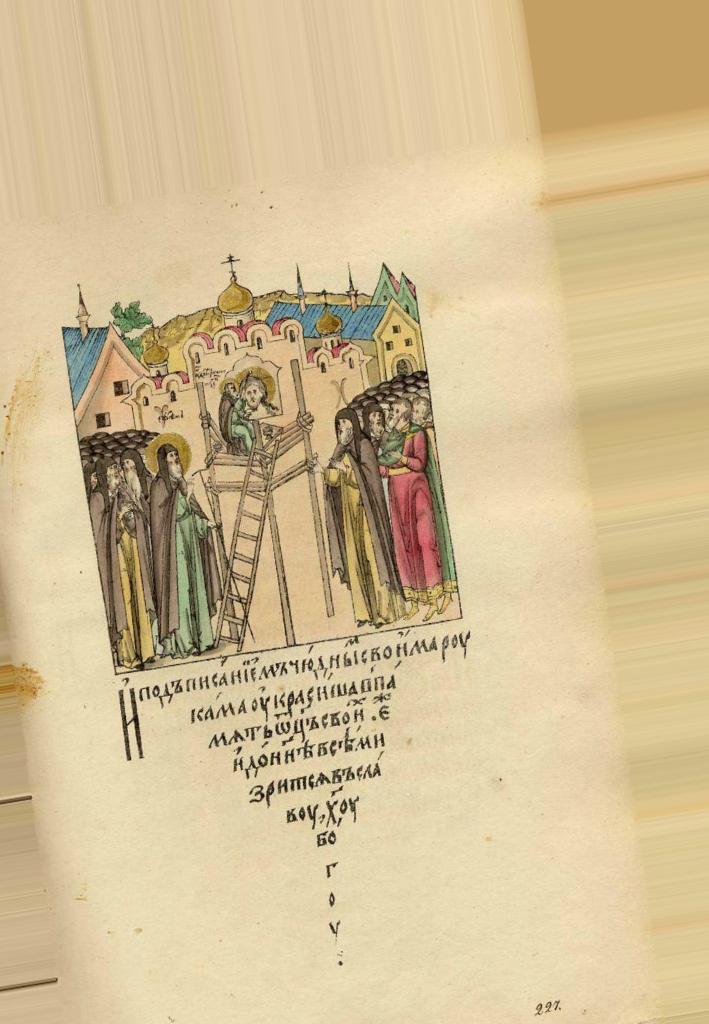 И҆подъписа́нїемъ чю́дны́мъ свои́ма роу
ка́ма оу҆краси́ша в̾ па́
мѧть ѿц҃ъ свои́х. є҆ж
и҆ до ны́нѣ все́ми
зри́тсѧ въ сла́
воу х҃оу
бо́
г
о
у҆
:
227.